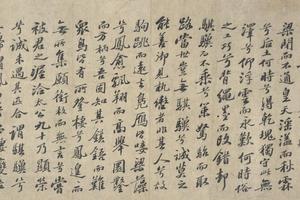 梁閉而不通皇天淫溢而秋霖
兮后土何時兮得乾塊獨守此無
澤兮仰浮雲而永歎何時俗
之工巧兮背繩墨而改錯却
騏驥而不乘兮策駑駘而取
路當世豈無騏驥兮誠莫之
能善御見執轡者非其人兮故
駒跳而遠去鳧鴈皆唼夫梁藻
兮鳳愈飄翔而高舉圜鑿
而方枘兮吾固知其鉏鋙而難
衆鳥皆有所登棲兮鳳遑遑而
無所集願銜枚而無言兮嘗
被君之渥洽太公九十乃顯榮
兮誠未遇其匹合謂騏驥